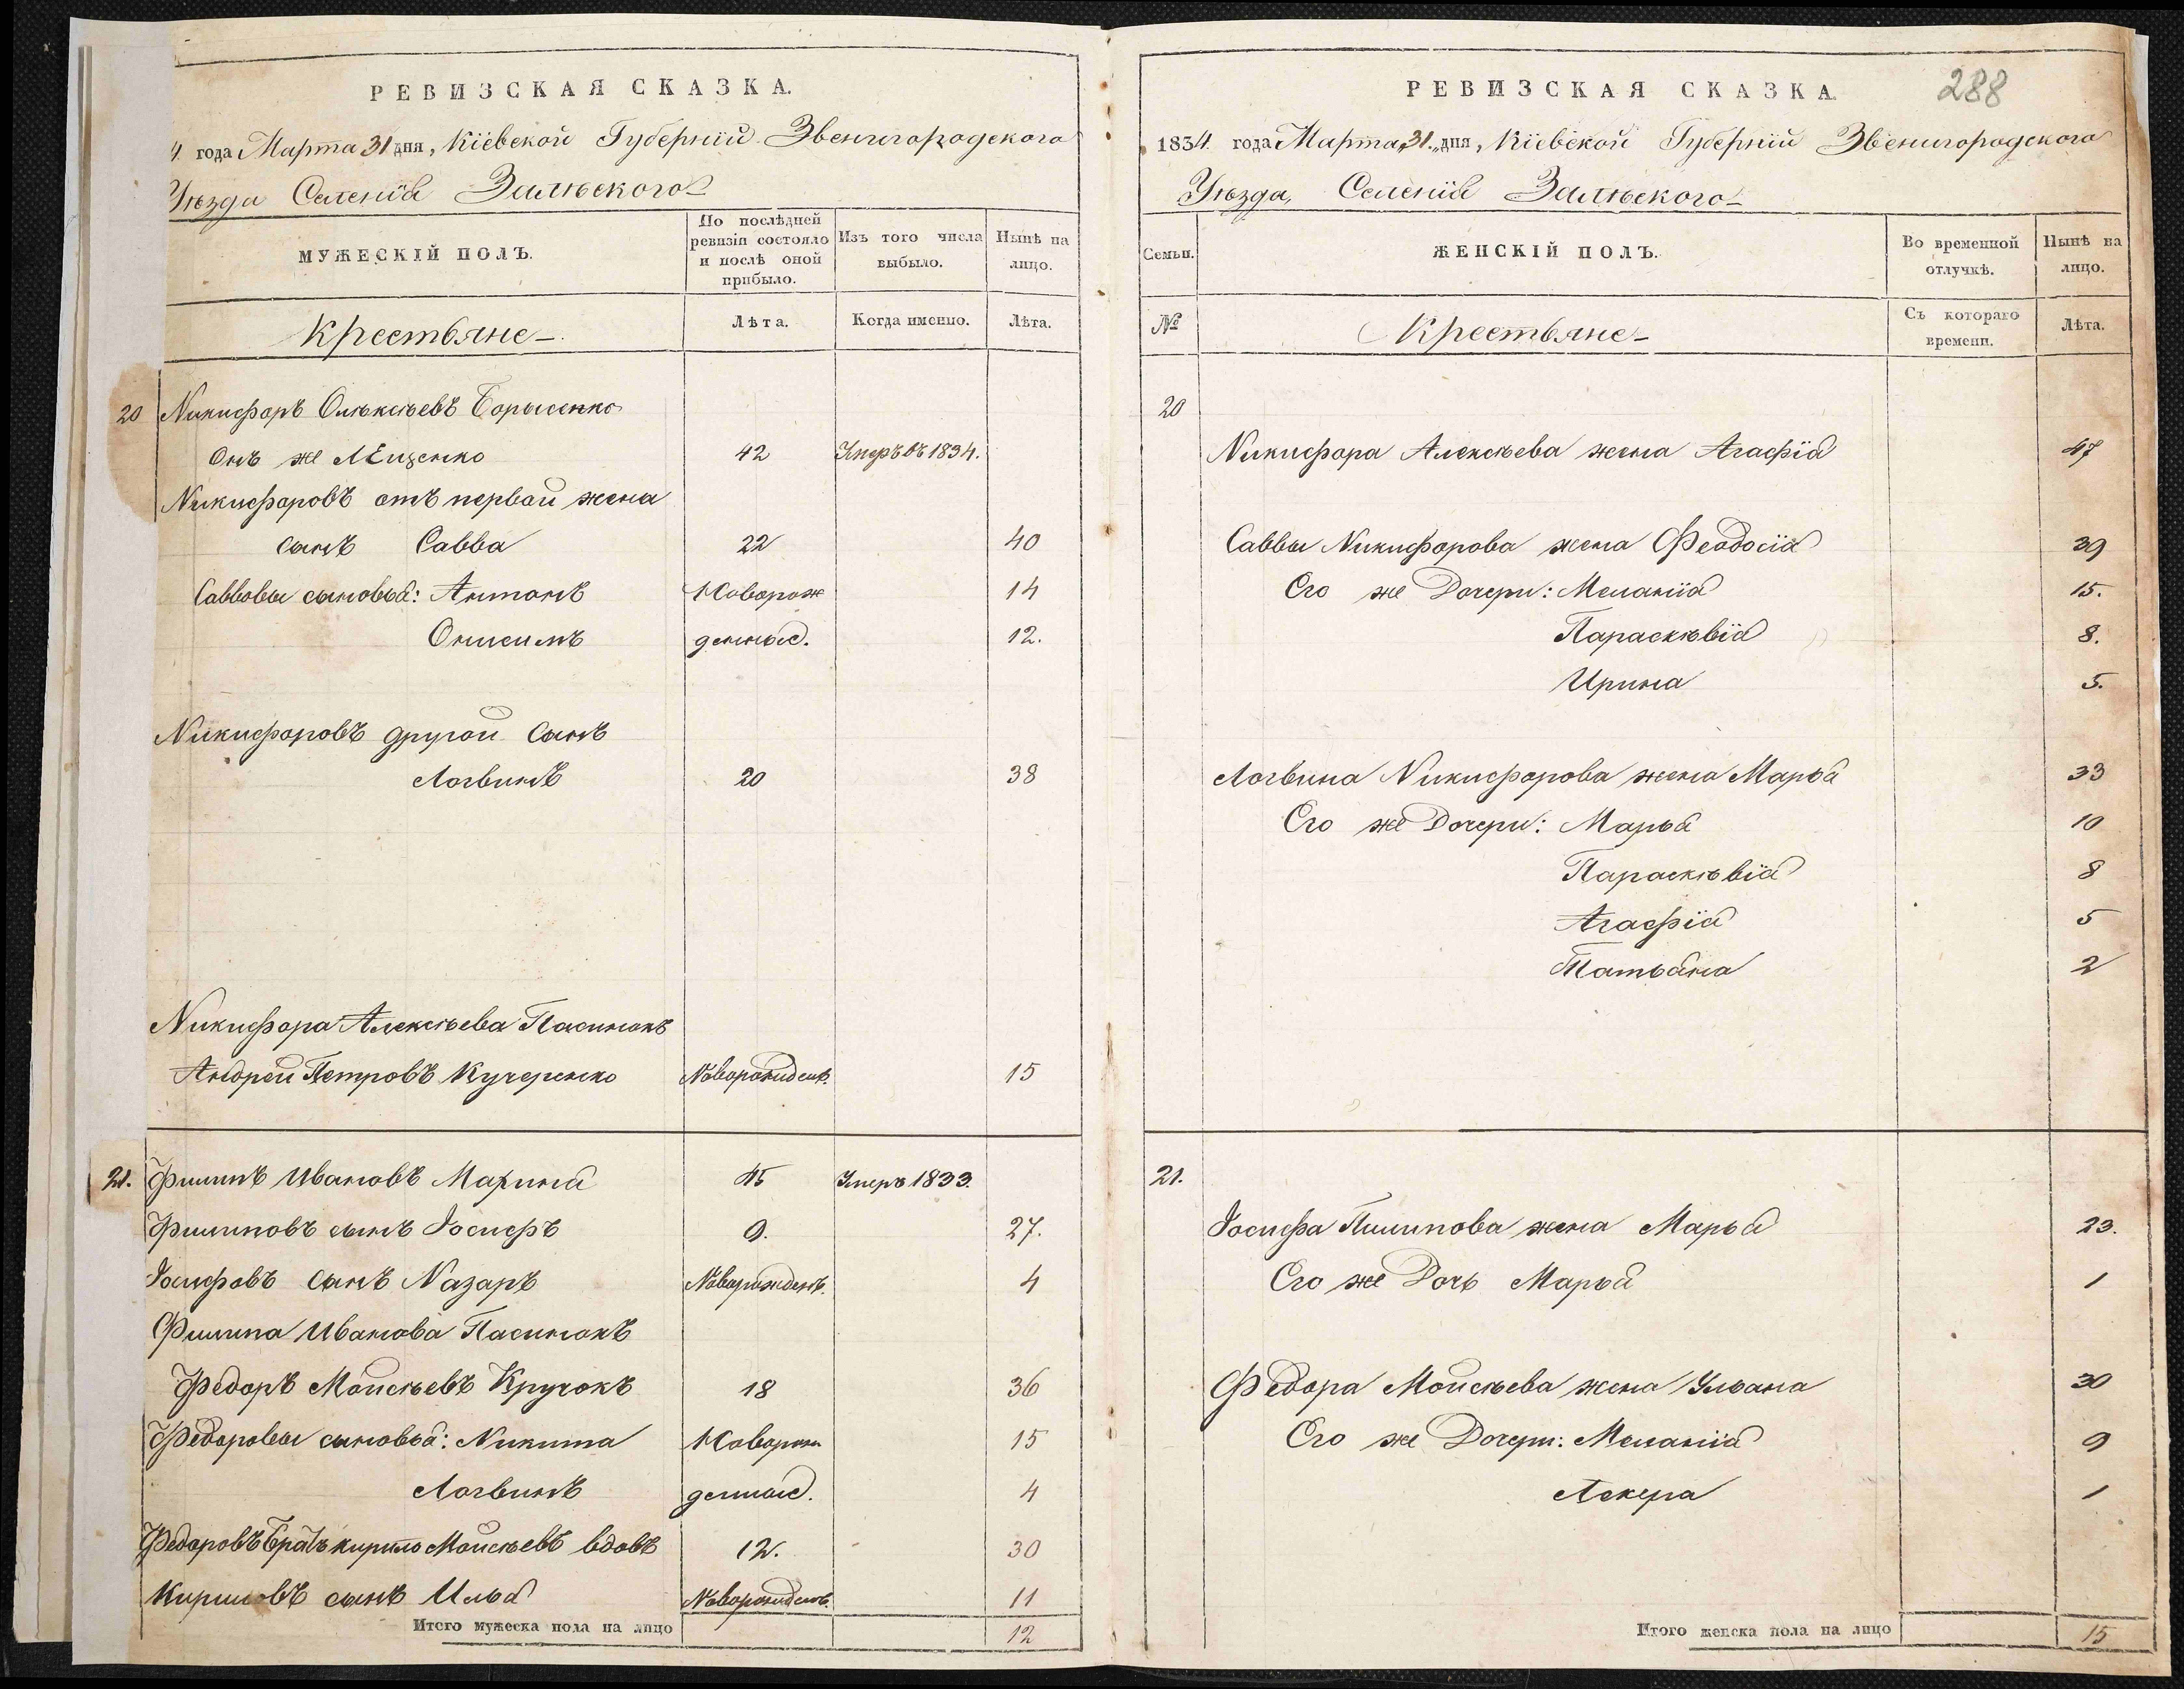 РЕВИЗСКАЯ СКАЗКА.
4. года Марта 31 дня, Кіевской Губерніи Звенигородского
Уѣзда Селенія Залѣского
МУЖЕСКІЙ ПОЛЪ.
По послѣдней ревизіи состояло и послѣ оной прибыло.
Изъ того числа выбыло.
Нынѣ на лицо.
Крестьяне
Лѣта.
Когда именно.
Лѣта.
20 Никифоръ Олѣксѣевъ Борысенко
Онъ же Мищенко 42 Умеръ въ 1834.
Никифоровъ отъ первой жена
сынъ Савва 22 40
Саввовы сыновья: Антонъ Новорож 14
Онисимъ денные. 12.
Никифоровъ другой Сынъ
Логвинъ 20 38
Никифора Алексѣева Пасинокъ
Андрей Петровъ Кучеренко Новорожден. 15
21. Филипъ Ивановъ 45 Умеръ 1833.
Филиповъ сынъ Іосифъ 9. 27.
Іосифовъ Сынъ Назаръ Новорожден. 4
Филипа Иванова Пасинокъ
Федоръ Моисѣевъ Кручокъ 18 36
Федоровы сыновья: Никита Новорож 15
Логвинъ денные. 4
Федоровъ Братъ Кирило Моисѣевъ вдовъ 12. 30
Кириловъ сынъ Илья Новорожден. 11
Итого мужеска пола на лицо 12
РЕВИЗСКАЯ СКАЗКА. 288
1834. года Марта „31.„ дня, Кіевской Губерніи Звенигородского
Уѣзда, Селенія Залѣского
Семьи.
ЖЕНСКІЙ ПОЛЪ.
Во временной отлучкѣ.
Нынѣ на лицо.
№
Крестьяне
Съ котораго времени.
Лѣта.
20
Никифора Алексѣева жена Агафія 47
Саввы Никифорова жена Феодосія 39
Его же Дочери: Меланія 15.
Параскѣвія 8.
Ирина 5.
Логвина Никифорова жена Марья 33
Его же Дочери: Марья 10
Параскѣвія 8
Агафія 5
Татьяна 2
21.
Іосифа Пилипова жена Марья 23.
Его же Дочь Марья 1
Федора Моисѣева жена Ульяна 30
Его же Дочери: Меланія 9
1
Итого женска пола на лицо 15